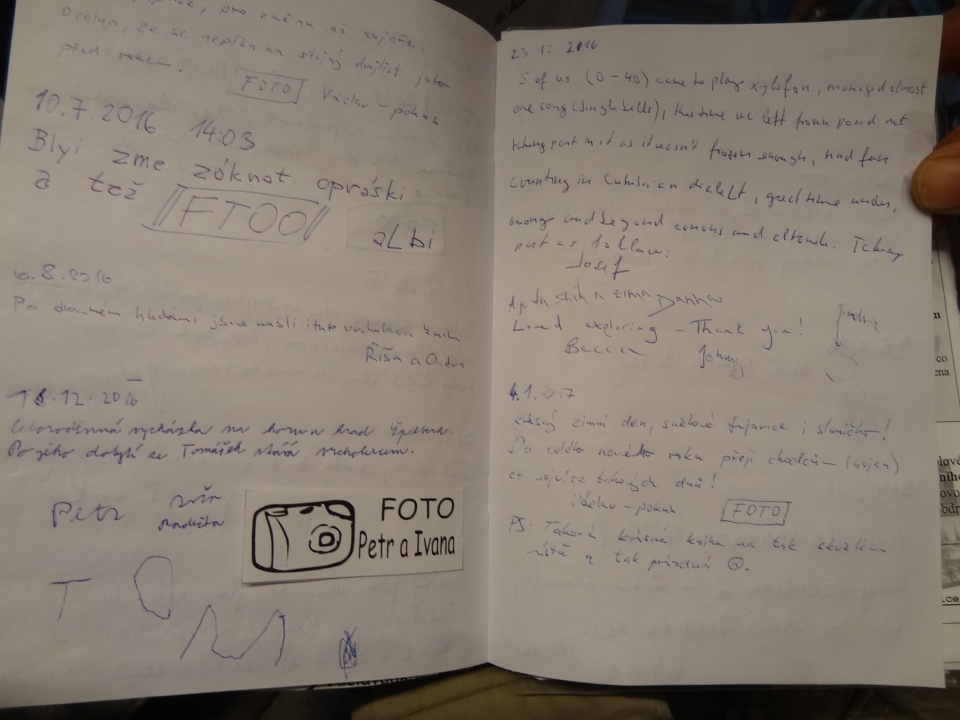 , pro změnu už najaře.
že se nepíšu na stejný dvojlist jako
před rokem.
FOTO Václav - pokus
10.7.2016 14:03
Blyi zme zóknot opráški
a tež FTOO
aLbi
6.8.2016
Po dlouhém hledání jsme našli tuto vrcholovou knihu
Ríša a Ondra
18.12.2016
Celorodinná vycházka na horu a hrad
Po jeho dobytí se Tomášek stává vrcholovým.
Petr
FOTO
Petr a Ivana
T O M
23.12.2016
5 of us (0-40) came to play xylofon, managed almost
one song (Jingle bells), this time we left frozen pond not
taking part in it as it wasn't frozen enough, had fun
counting in dialekt, great time under,
among and beyond and . Taking
part as follow:
Josef
zima
Loved exploring - Thank you!
Becca Johny
4.1.2017
krásný zimní den, sněhové i sluníčko!
Do celého nového roku přeji chodcům (nejen)
co nejvíce takových dnů!
Václav - pokus FOTO
PS: Taková krásná knížka na tak
místě a tak prázdná ☹.